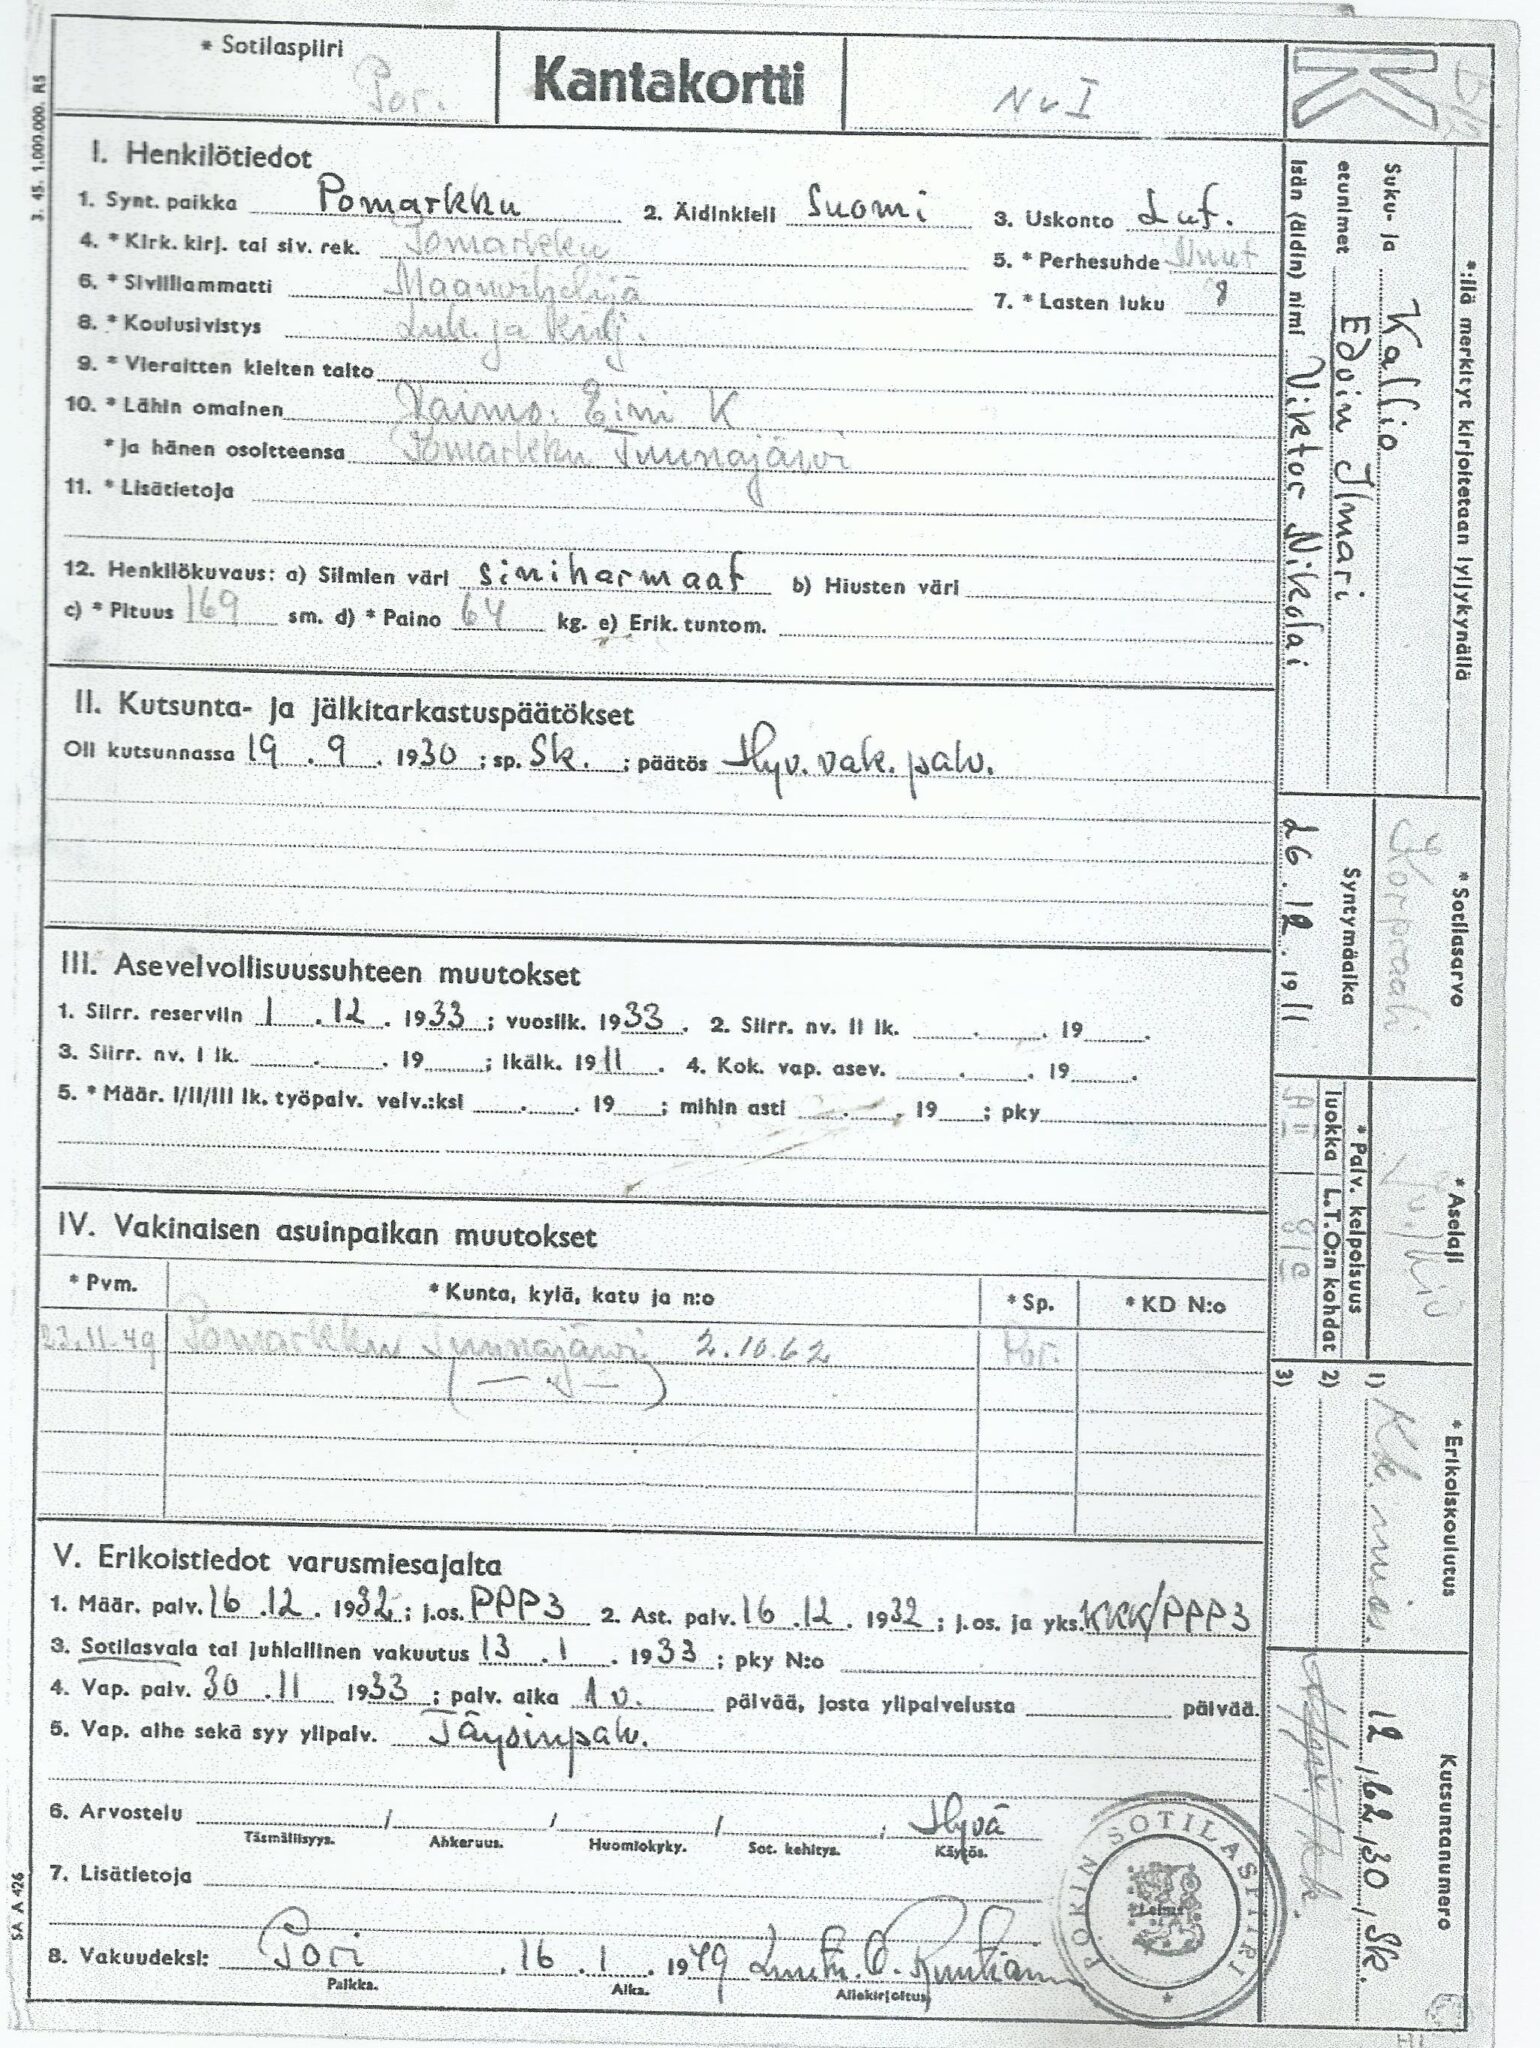 * Sotilaspiiri
Por.
Kantakortti
Nv I
K
3. 45. 1.000.000. R5
I. Henkilötiedot
1. Synt. paikka Pomarkku 2. Äidinkieli Suomi 3. Uskonto Lut.
4. * Kirk. kirj. tai siv. rek. Pomarkku 5. * Perhesuhde
6. * Siviiliammatti Maanviljelijä 7. * Lasten luku 8
8. * Koulusivistys Luk. ja kirj.
9. * Vieraitten kielten taito
10. * Lähin omainen Vaimo: Eini K
* ja hänen osoitteensa Pomarkku Tuunajärvi
11. * Lisätietoja
12. Henkilökuvaus: a) Silmien väri siniharmaat b) Hiusten väri
c) * Pituus 169 sm. d) * Paino 64 kg. e) Erik. tuntom.
II. Kutsunta- ja jälkitarkastuspäätökset
Oli kutsunnassa 19 . 9 . 1930 ; sp. Sk. ; päätös Hyv. vak. palv.
III. Asevelvollisuussuhteen muutokset
1. Siirr. reserviin 1 . 12 . 1933 ; vuosilk. 1933 . 2. Siirr. nv. II lk. . . 19 .
3. Siirr. nv. I lk. . . 19 ; ikälk. 1911 . 4. Kok. vap. asev. . . 19 .
5. * Määr. I/II/III lk. työpalv. velv.:ksi . . 19 ; mihin asti . . 19 ; pky
IV. Vakinaisen asuinpaikan muutokset
* Pvm. * Kunta, kylä, katu ja n:o * Sp. * KD N:o
23.11-49 Pomarkku Tuunajärvi 2.10.62 Por.
( — " — )
V. Erikoistiedot varusmiesajalta
1. Määr. palv. 16 . 12 . 1932 ; j.os. PPP3 2. Ast. palv. 16 . 12 . 1932 ; j.os. ja yks. KKK/PPP3
3. Sotilasvala tai juhlallinen vakuutus 13 . 1 . 1933 ; pky N:o
4. Vap. palv. 30 . 11 1933 ; palv. aika 1 v. päivää, josta ylipalvelusta päivää.
5. Vap. aihe sekä syy ylipalv. Täysinpalv.
6. Arvostelu / / / ; Hyvä
Täsmällisyys. Ahkeruus. Huomiokyky. Sot. kehitys. Käytös.
7. Lisätietoja
8. Vakuudeksi: Pori , 16 . 1 . 1949
Paikka. Aika. Allekirjoitus.
PORIN SOTILASPIIRI
Leima
SA A 426
*:illä merkityt kirjoitetaan lyijykynällä
Suku- ja Kallio
etunimet Edvin Ilmari
Isän (äidin) nimi Viktor Nikolai
* Sotilasarvo
Korpraali
Syntymäaika
26 . 12 . 1911
* Aselaji
* Palv. kelpoisuus
luokka L.T.O:n kohdat
A II
* Erikoiskoulutus
1) Kk. mies.
2)
3)
Kutsuntanumero
12 / 62 / 30 / Sk.